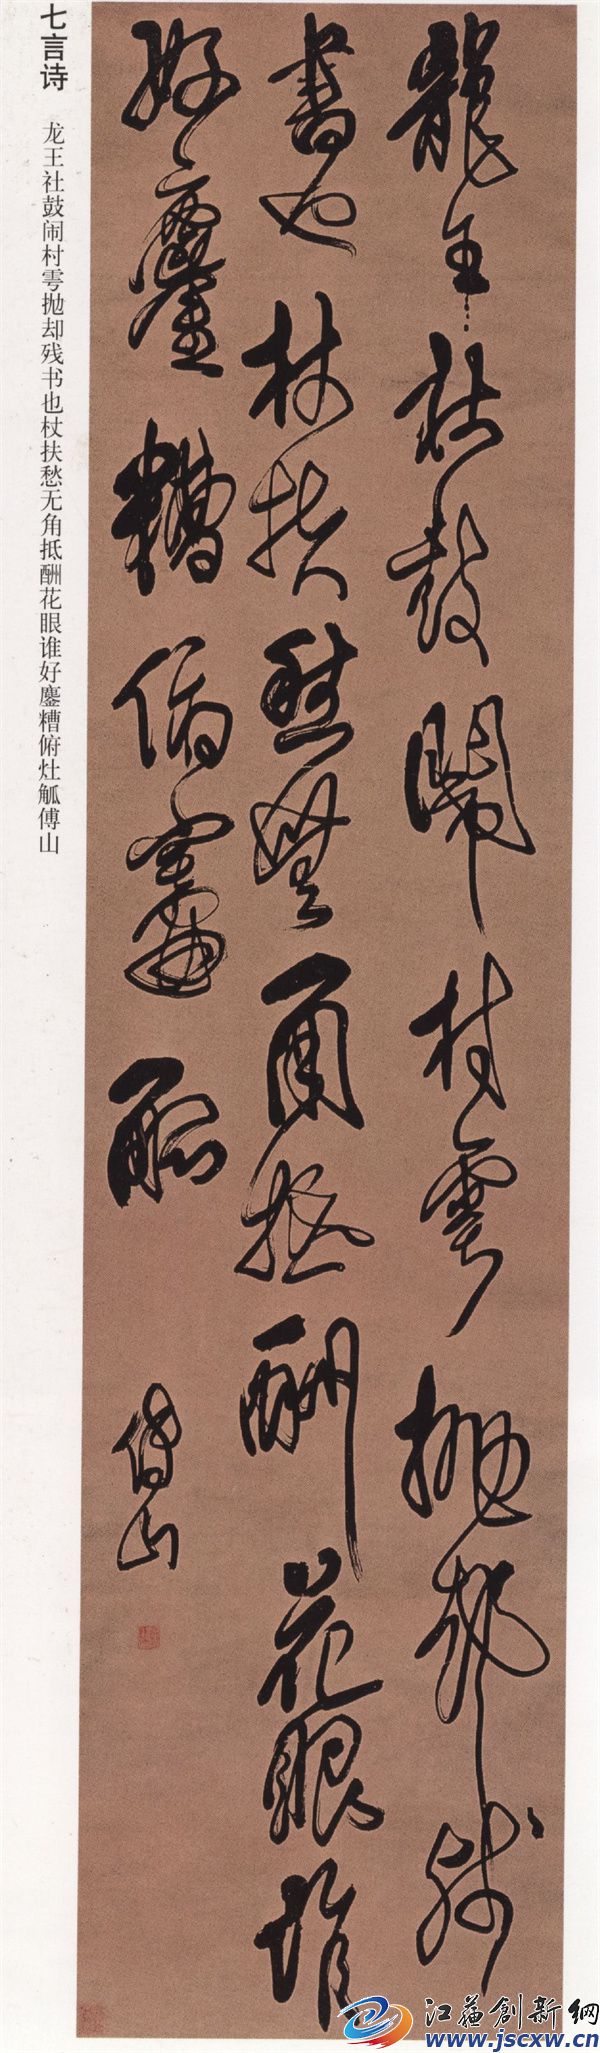 七言诗
龙王社鼓闹村雩抛却残书也杖扶愁无角抵酬花眼谁好鏖糟俯灶觚傅山
龍王社鼓鬧村雩拋却残
書也杖扶愁無角抵酬花眼誰
好鏖糟俯竈觚
傅山
江蘇創新網
www.jscxw.cn